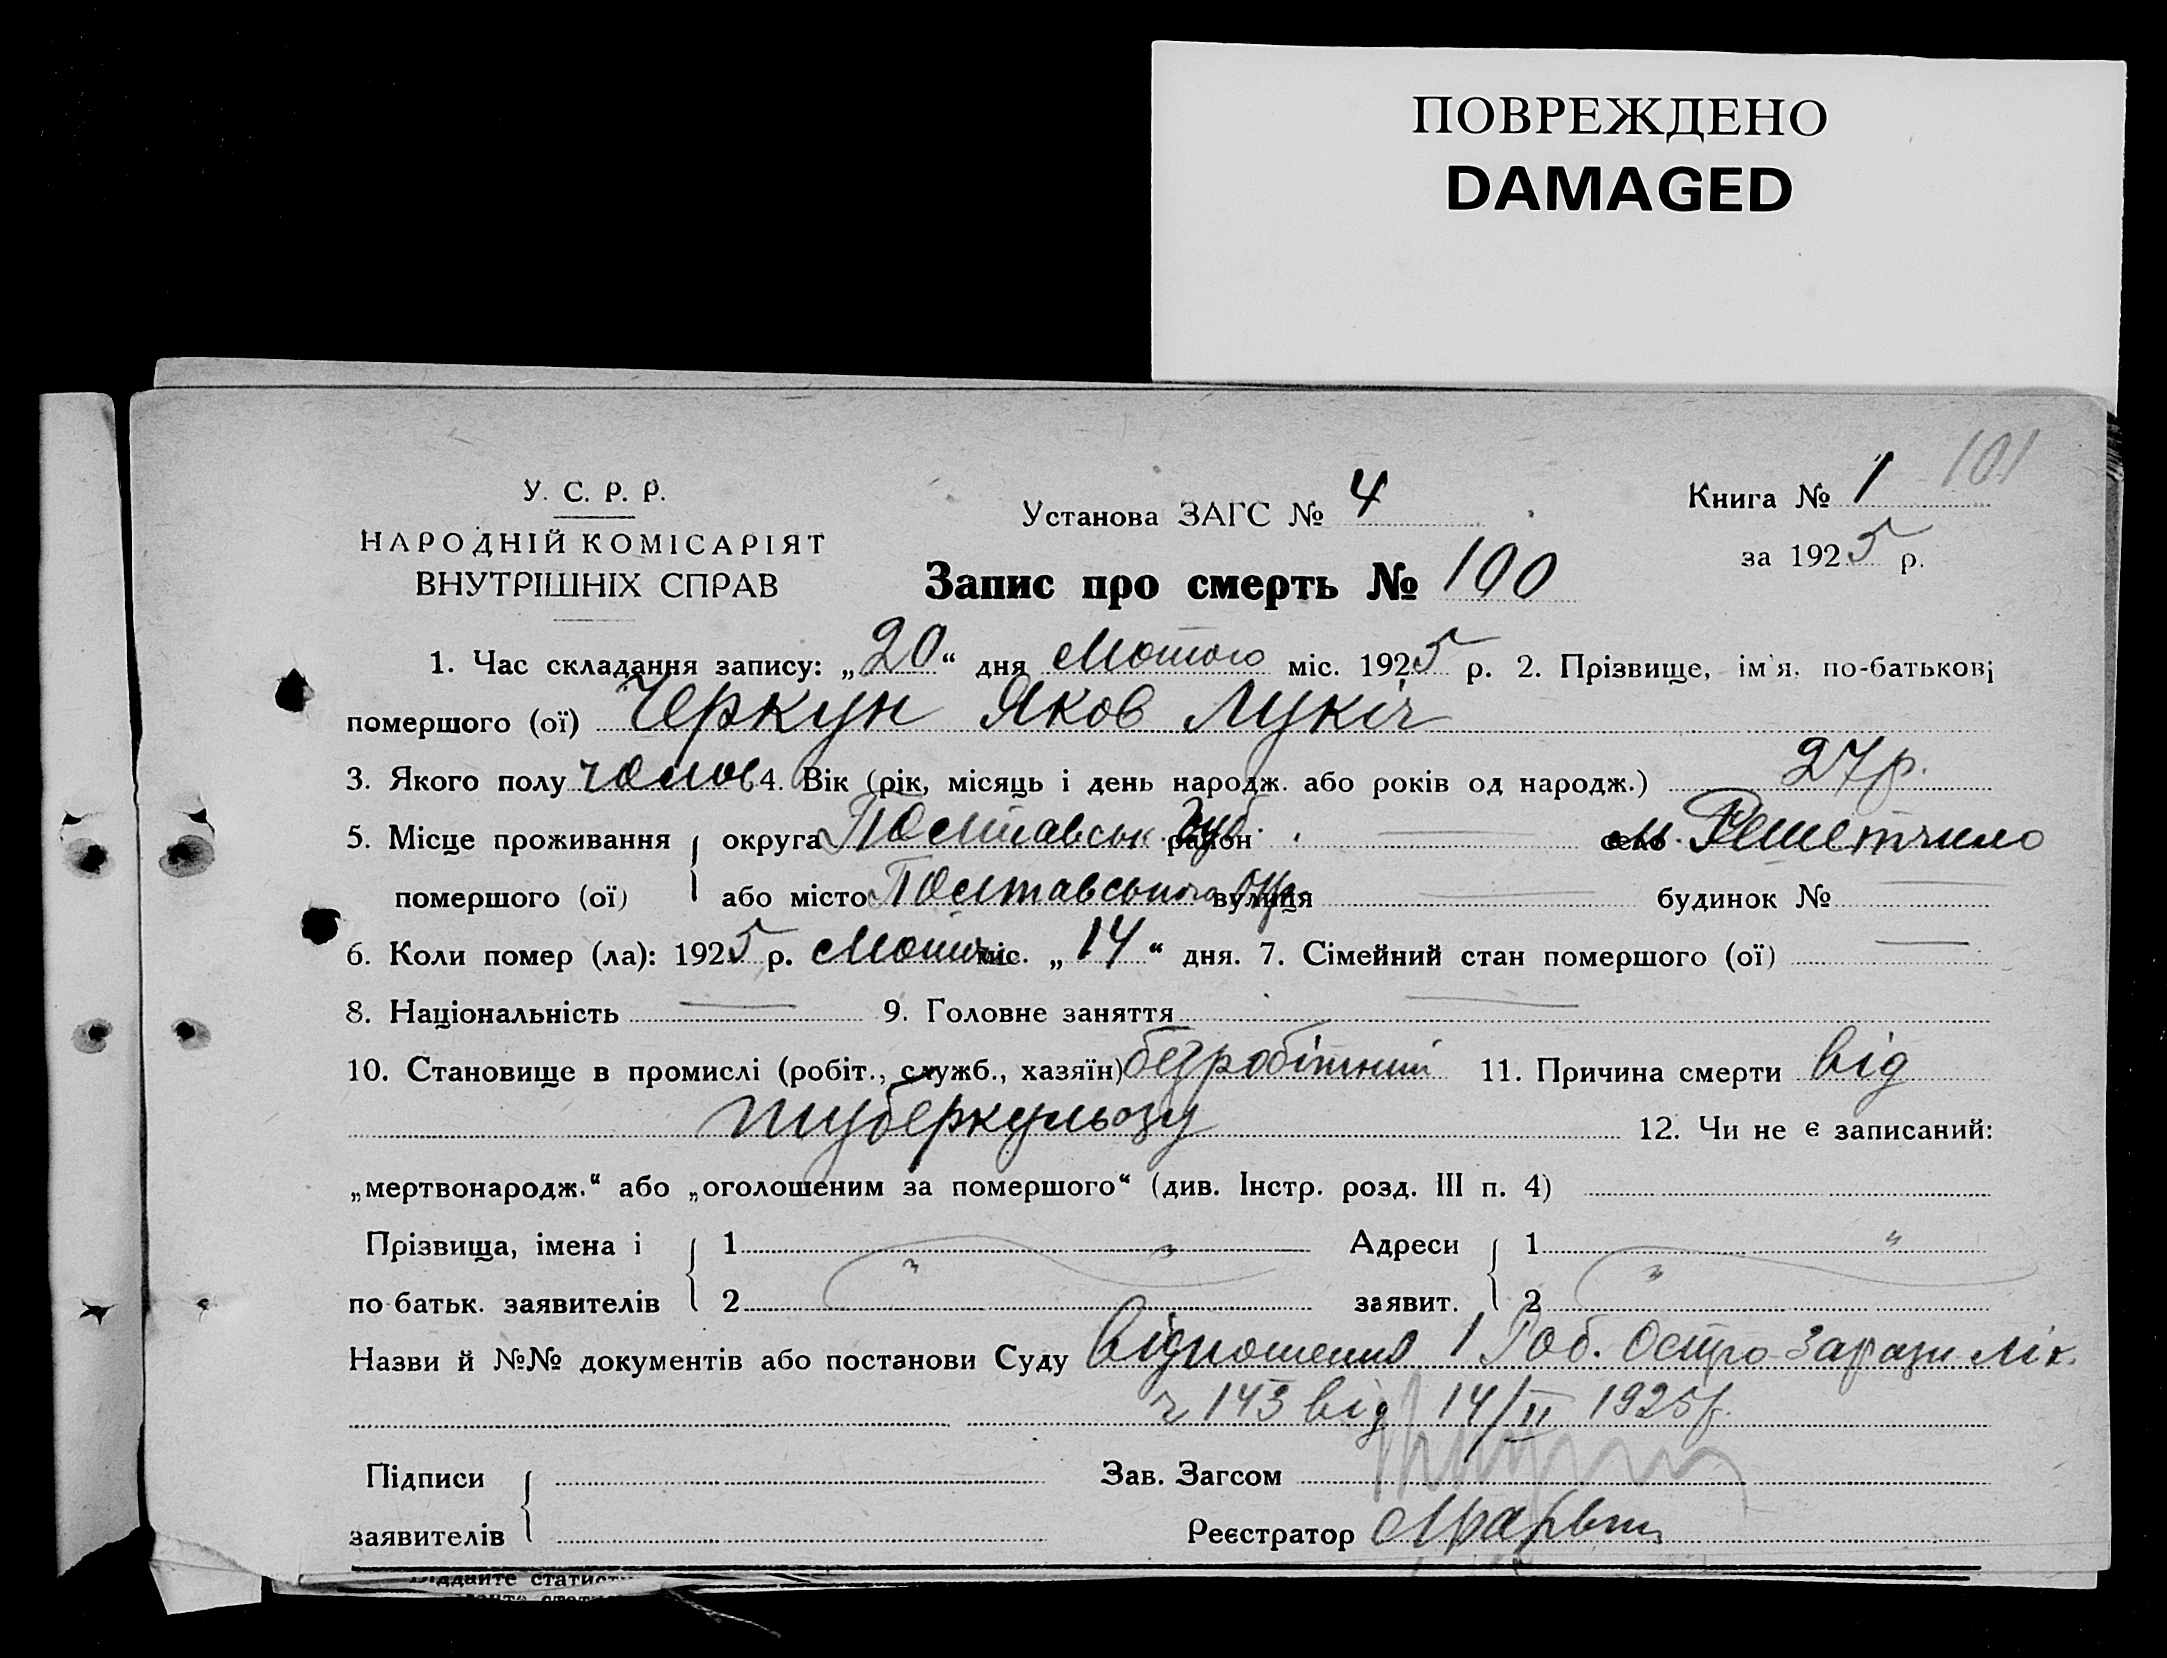 ПОВРЕЖДЕНО
DAMAGED
101
У. С. Р. Р.
НАРОДНІЙ КОМІСАРІЯТ
ВНУТРІШНІХ СПРАВ
Установа ЗАГС № 4
Книга № 1
за 1925 р.
Запис про смерть № 100
1. Час складання запису: „20“ дня Лютого міс. 1925 р. 2. Прізвище, ім'я, по-батькові
помершого (ої) Черкун Яков Лукіч
3. Якого полу чолов 4. Вік (рік, місяць і день народж. або років од народж.) 27 р.
5. Місце проживання округа Полтавськ. губ. район — село Решетило
помершого (ої) або місто Полтавського вулиця — будинок № —
6. Коли помер (ла): 1925 р. Лютого міс. „14“ дня. 7. Сімейний стан помершого (ої) —
8. Національність — 9. Головне заняття —
10. Становище в промислі (робіт., служб., хазяїн) безробітний 11. Причина смерти від
туберкульозу 12. Чи не є записаний:
„мертвонародж.“ або „оголошеним за помершого“ (див. Інстр. розд. III п. 4)
Прізвища, імена і 1 " Адреси 1 "
по батьк. заявителів 2 " заявит. 2 "
Назви й №№ документів або постанови Суду Відношення 1 Роб. Остро-Зарази Лік.
ч 143 від 14/II 1925 р.
Підписи Зав. Загсом
заявителів Реєстратор